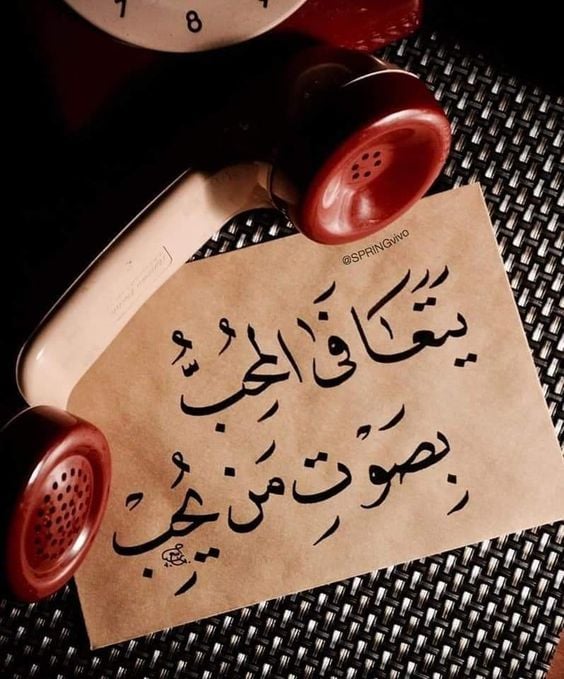 7 8
@SPRINGvivo
يَتَعَافَى المُحِبُّ
بِصَوْتِ مَنْ يُحِبْ